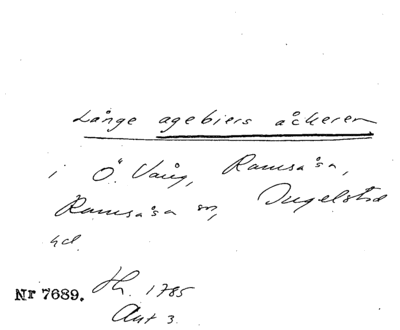 Långe agebiers åckeren
i Ö. Vång, Ramsåsa,
Ramsåsa sn, Ingelstad
hd
Nr 7689. Th. 1785
Akt 3.